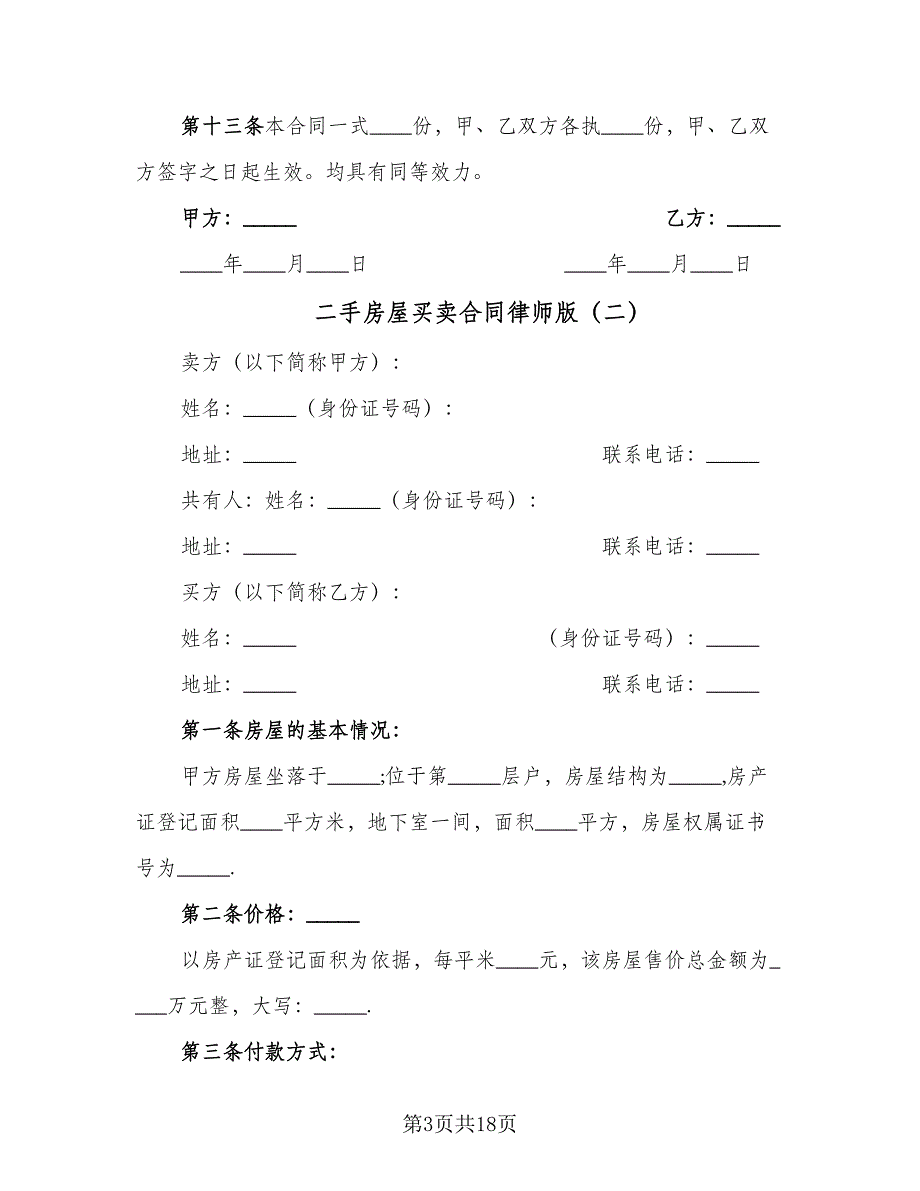 第十三条本合同一式____份，甲、乙双方各执____份，甲、乙双
方签字之日起生效。均具有同等效力。
甲方：_____ 乙方：_____
____年____月____日 ____年____月____日
二手房屋买卖合同律师版（二）
卖方（以下简称甲方）：
姓名：_____（身份证号码）：
地址：_____ 联系电话：_____
共有人：姓名：_____（身份证号码）：
地址：_____ 联系电话：_____
买方（以下简称乙方）：
姓名：_____ （身份证号码）：_____
地址：_____ 联系电话：_____
第一条房屋的基本情况：
甲方房屋坐落于_____;位于第_____层户，房屋结构为_____,房产
证登记面积____平方米，地下室一间，面积____平方，房屋权属证书
号为_____.
第二条价格：_____
以房产证登记面积为依据，每平米____元，该房屋售价总金额为_
___万元整，大写：_____.
第三条付款方式：
第3页共18页